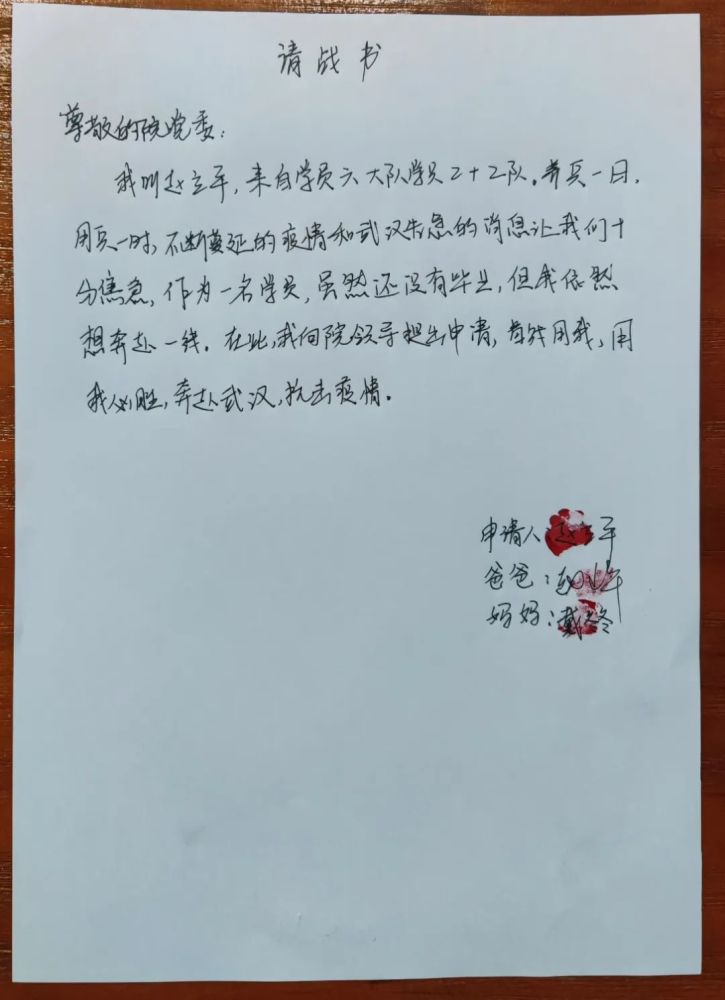 请战书
尊敬的院党委：
我叫赵立平，来自学员六大队学员二十二队。养兵一日，
用兵一时，不断蔓延的疫情和武汉告急的消息让我们十
分焦急，作为一名学员，虽然还没有毕业，但我依然
想奔赴一线。在此，我向院领导提出申请，若能用我，用
我必胜，奔赴武汉，抗击疫情。
申请人：赵 平
爸爸：
妈妈：戴